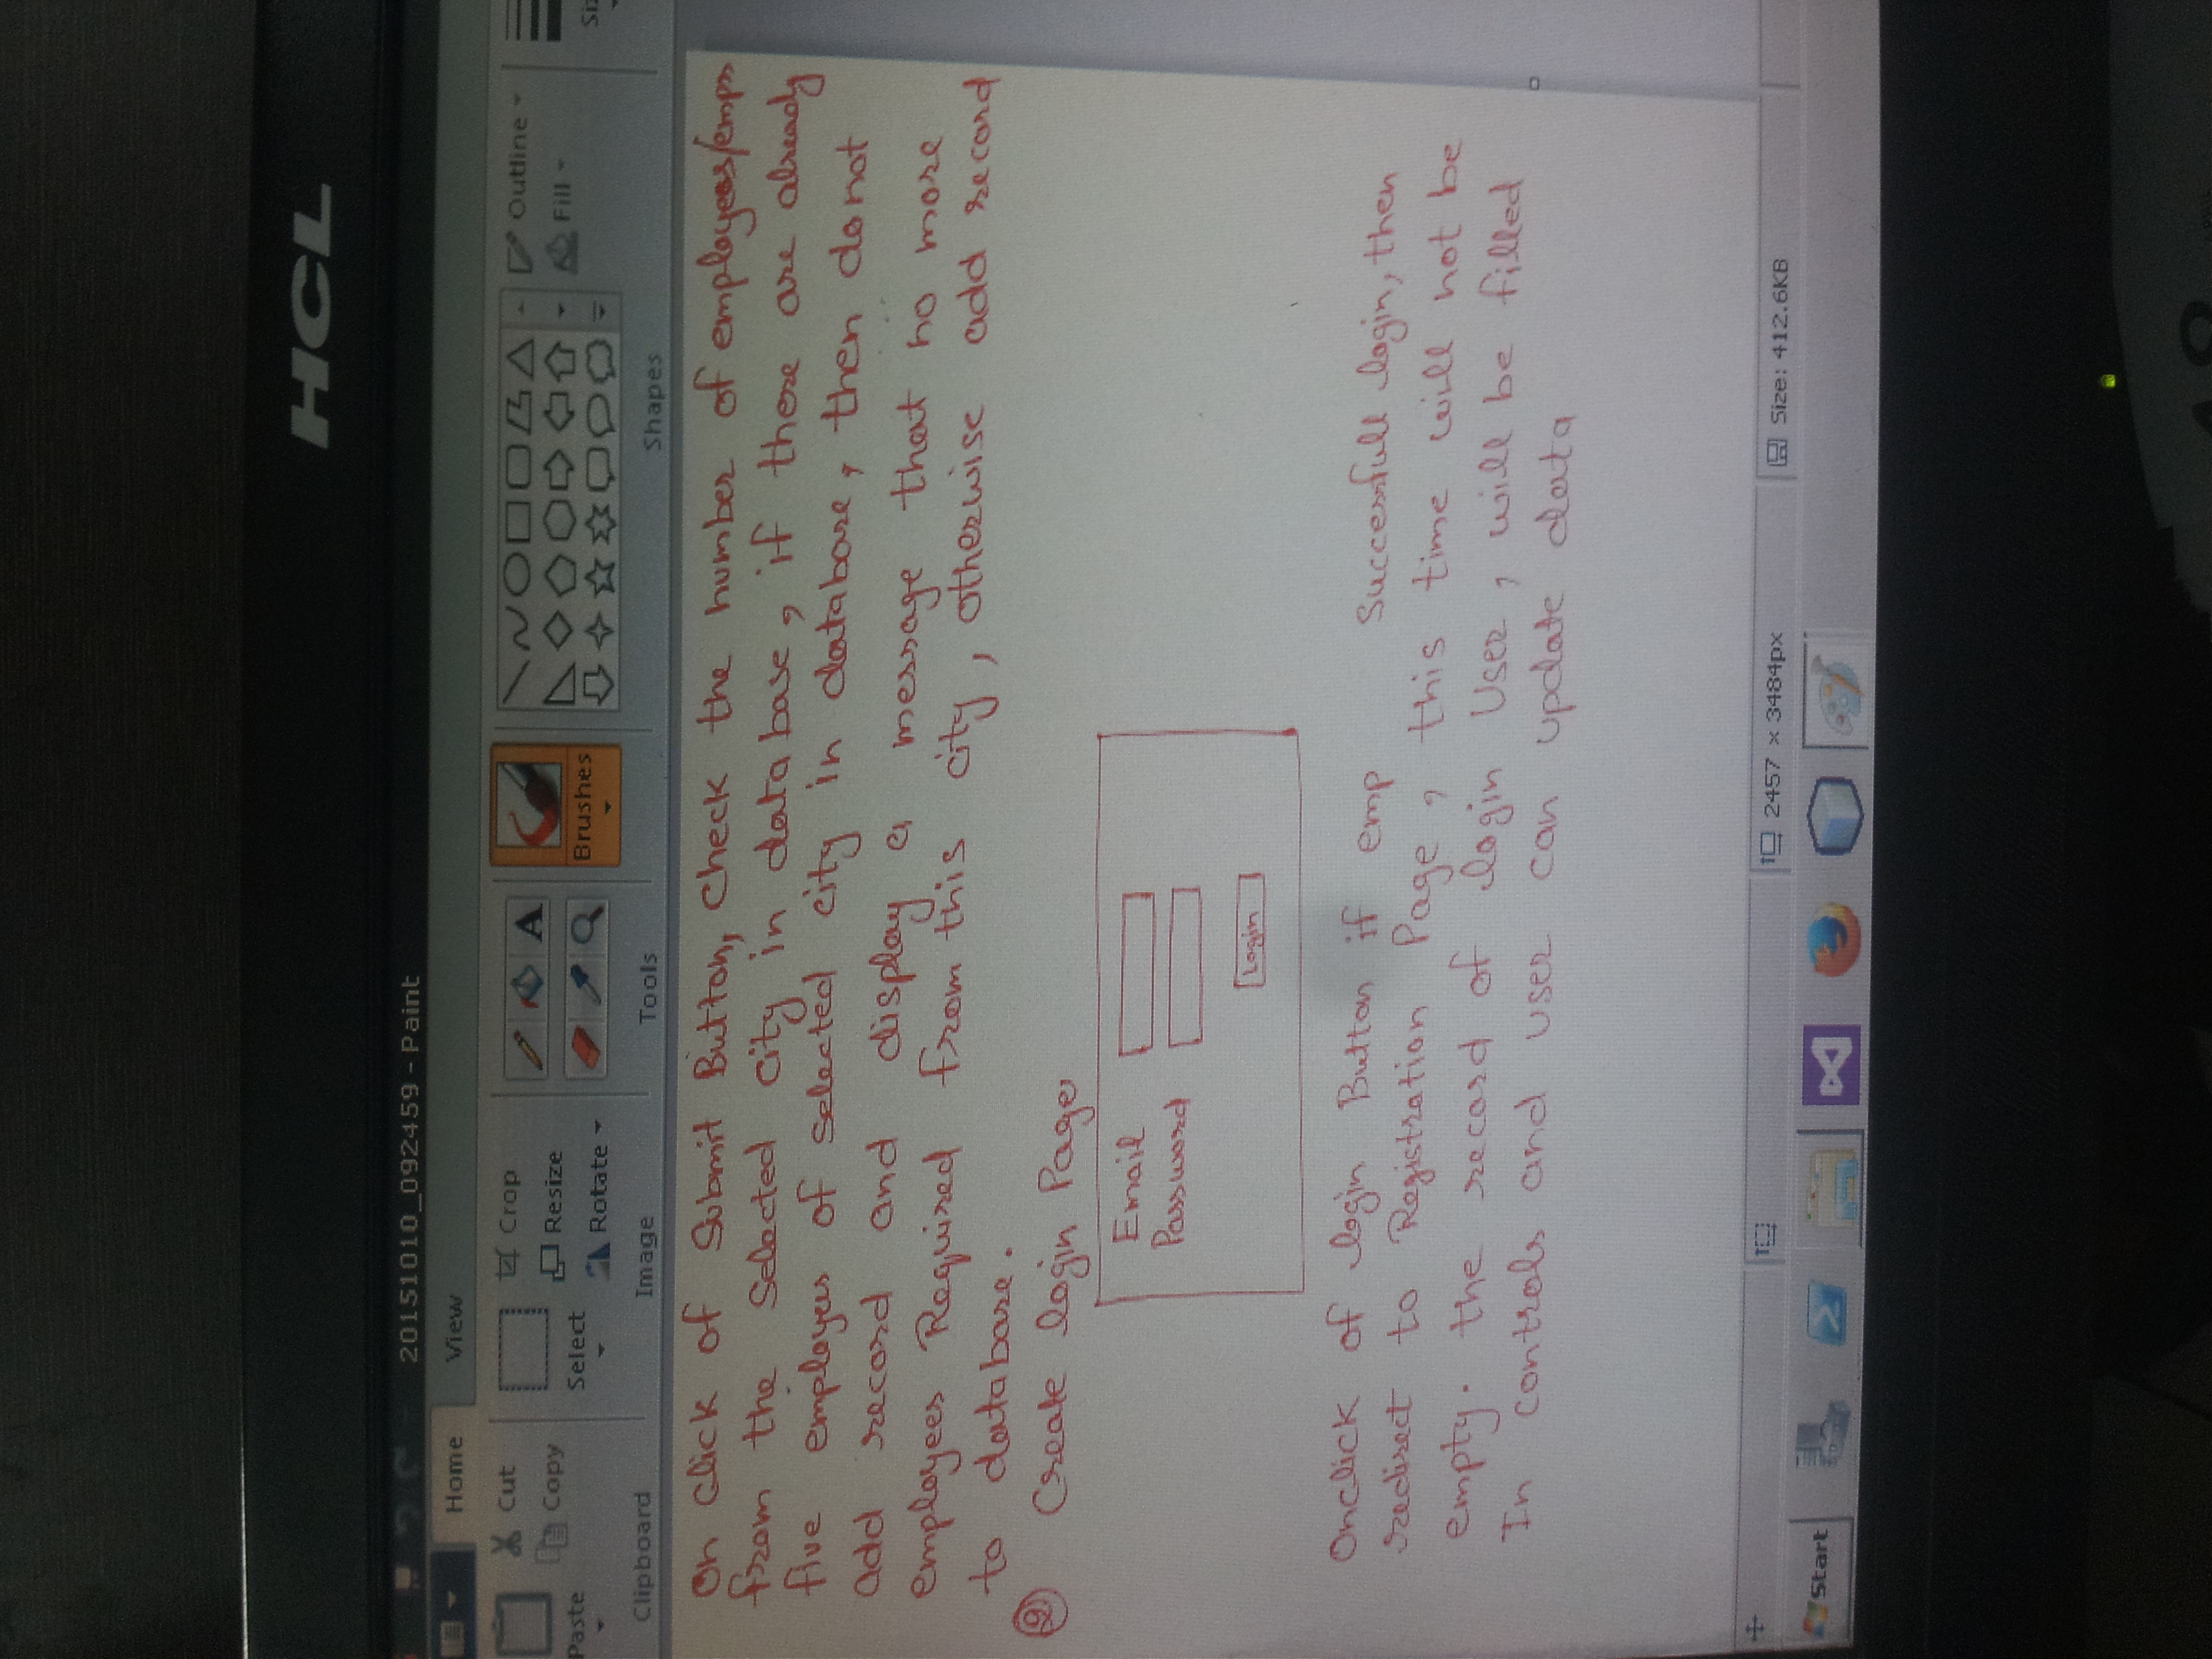 HCL
20151010_092459 - Paint
Home View
Cut
Copy
Paste
Clipboard
Select
Crop
Resize
Rotate
Image
A
Tools
Brushes
Shapes
Outline
Fill
On click of Submit Button, Check the number of employees/emps
from the Selected city in database, if there are already
five employees of selected city in database, then do not
add record and display a message that no more
employees Required from this city, otherwise add record
to database.
2 Create login Page
Email
Password
Login
Onclick of login Button if emp Successfull login, then
redirect to Registration Page, this time will not be
empty. the record of login User, will be filled
In controls and user can update data
2457 × 3484px
Size: 412.6KB
Start